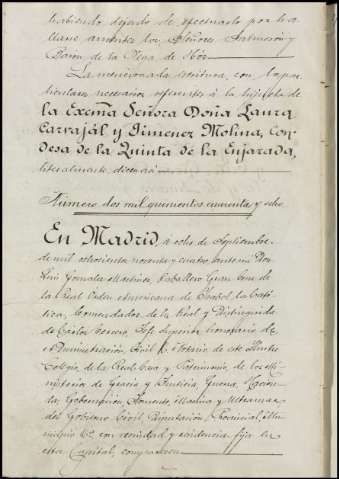 habiendo dejado de efectuarlo por ha
Señores Salmerón y
Barón de la Vega de Hoz
La mencionada escritura, con la par
necesarios referentes á la hijuela de
la Excma Señora Doña Laura
Carvajál y Jimenez Molina, Con
desa de la Quinta de la Enjarada,
literalmente, dicen así
Número dos mil quinientos cuarenta y ocho
En Madrid, á ocho de Septiembre
de mil ochocientos noventa y cuatro, ante mí Don
Luis Gonzalez Martinez, Caballero Gran Cruz de
la Real Orden Americana de Isabel la Cató
lica, Comendador de la Real y Distinguida
de Carlos tercero, Jefe Superior honorario de
Administración Civil y Notario de este Ilustre
Colegio, de la Real Casa y Patrimonio, de los Mi
nisterios de Gracia y Justicia, Guerra, Hacien
da, Gobernación, Fomento, Marina y Ultramar
del Gobierno Civil, Diputación Provincial, Mu
nicipio &c con vecindad y residencia fija en
esta Capital, comparecen